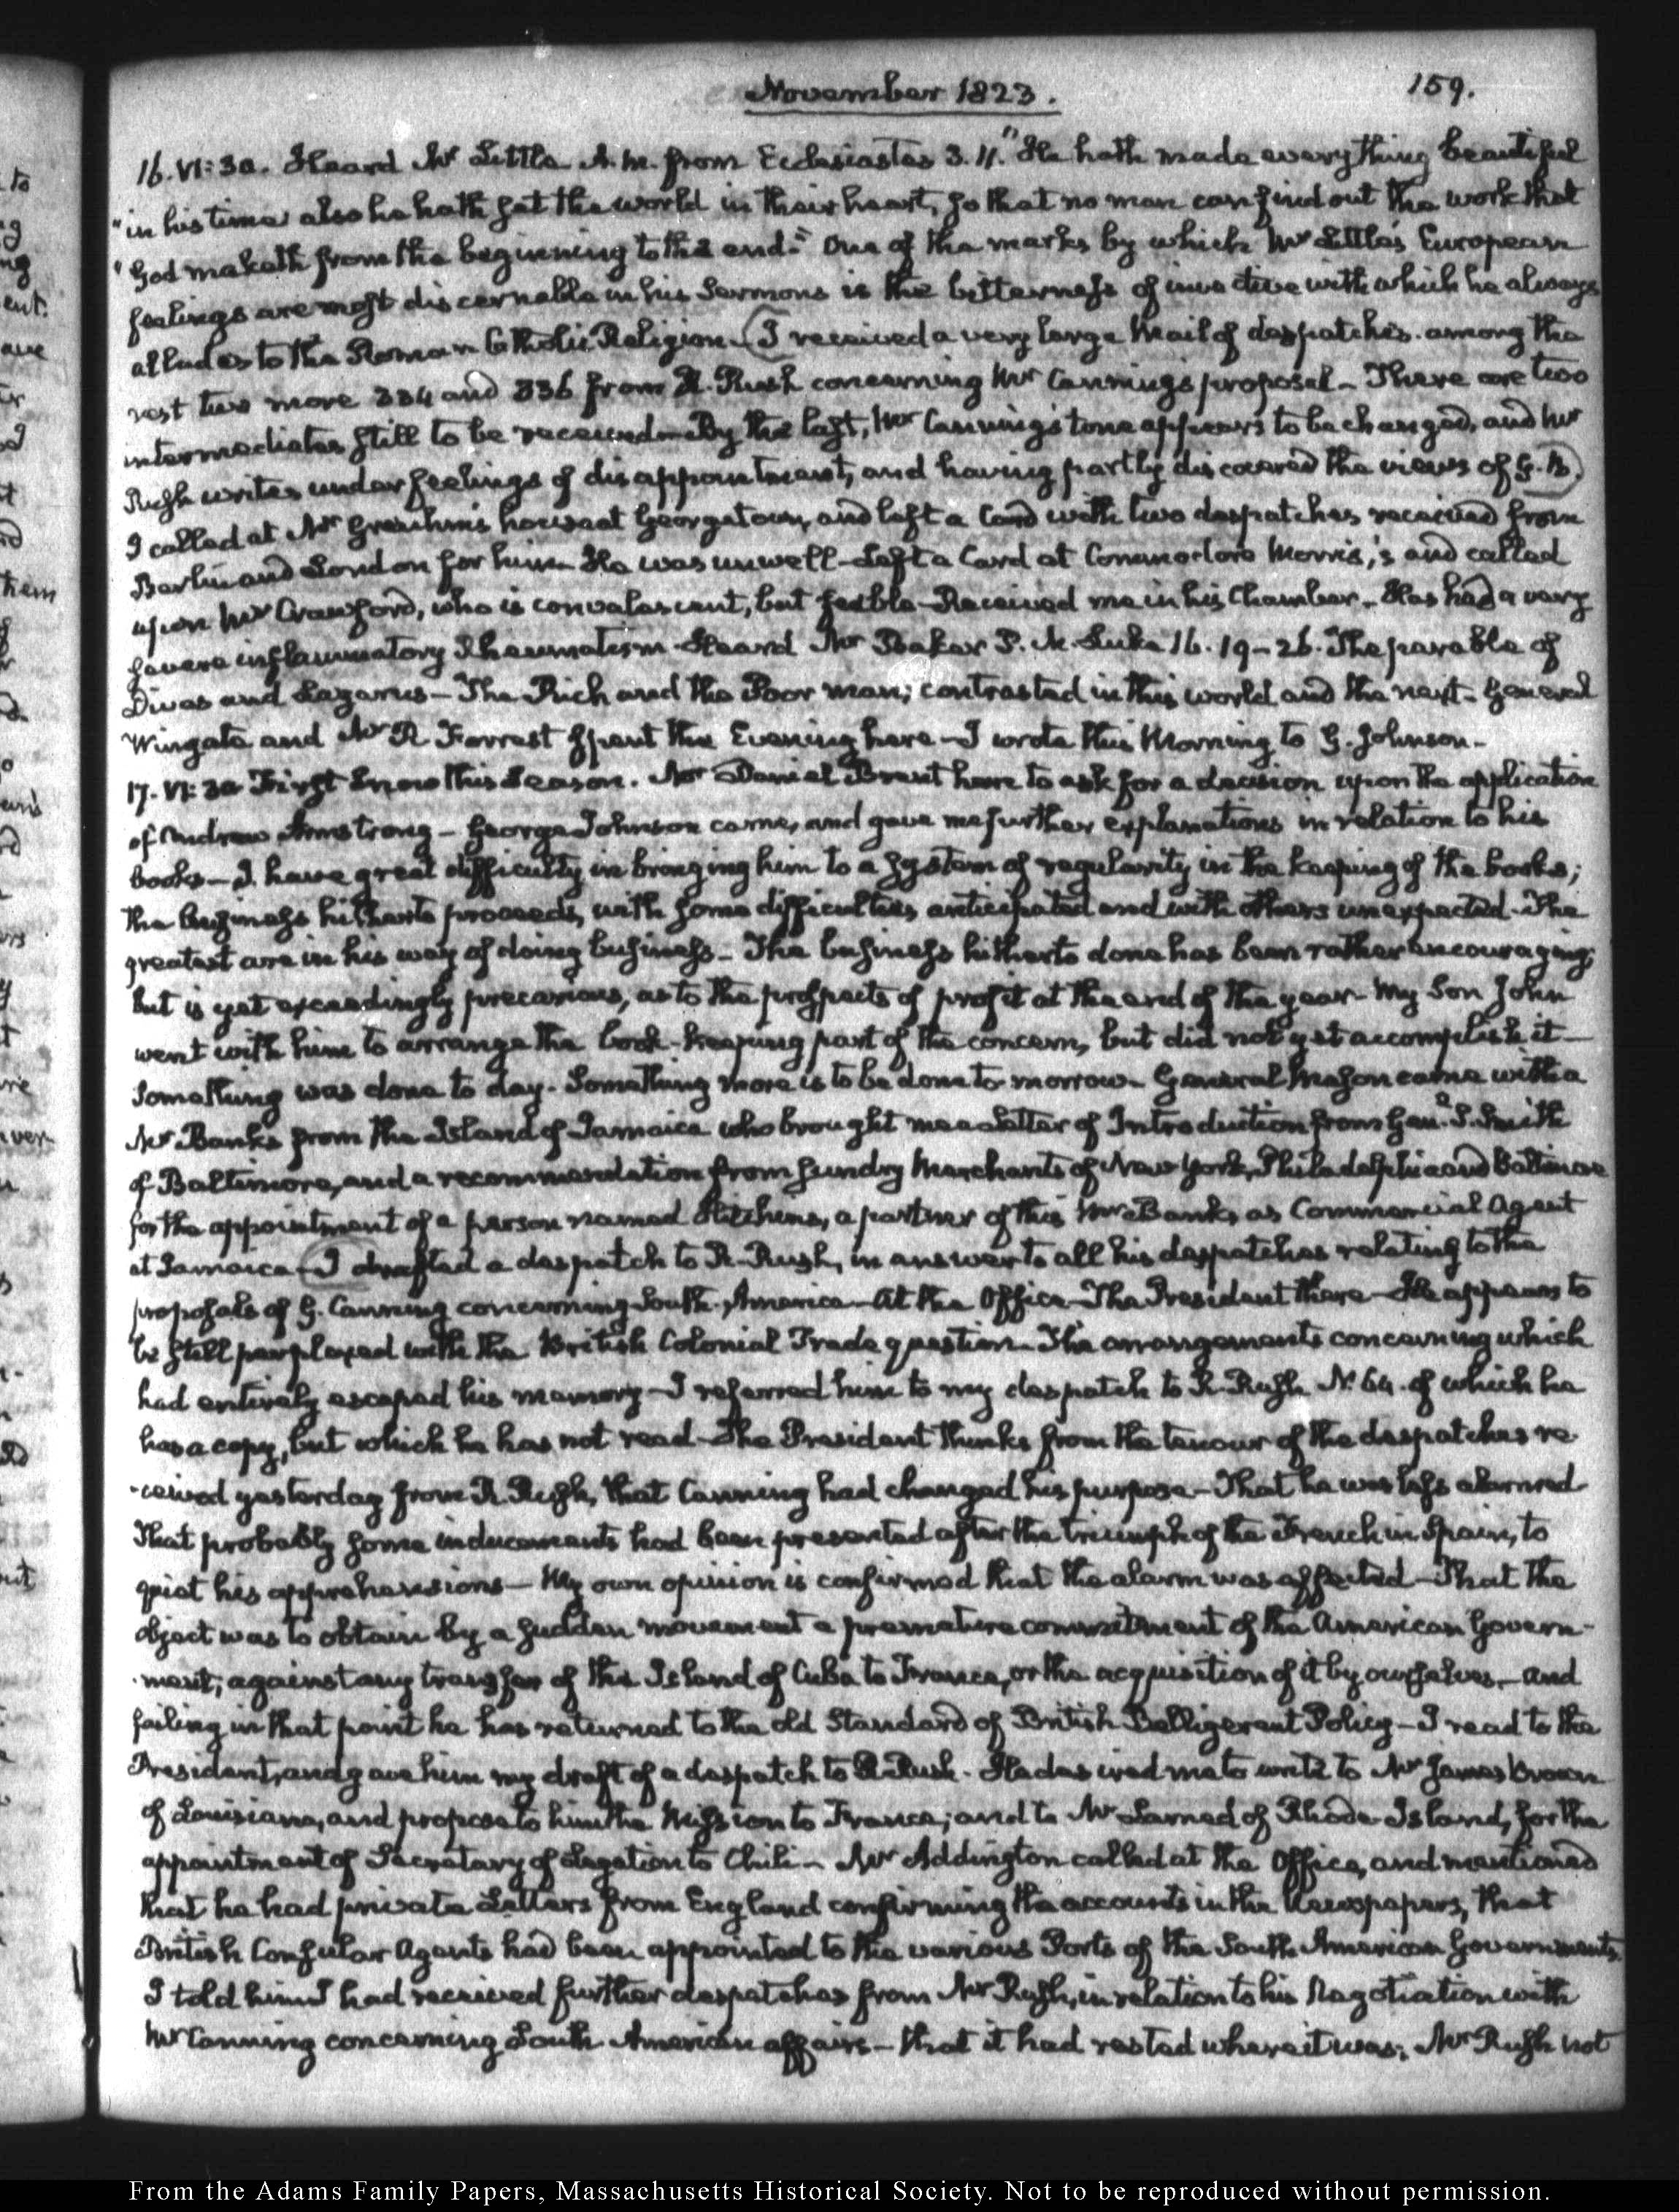 November 1823.
159.
16. VI:30. Heard Mr Little A.M. from Ecclesiastes 3. 11. "He hath made every thing beautiful
"in his time: also he hath set the world in their heart, so that no man can find out the work that
"God maketh from the beginning to the end." One of the marks by which Mr Little's European
feelings are most discernable in his Sermons is the bitterness of invective with which he always
alludes to the Roman Catholic Religion. I received a very large Mail of despatches. among the
rest two more 334 and 336 from R. Rush concerning Mr Canning's proposal — There are two
intermediates still to be received — By the last, Mr Canning's tone appears to be changed, and Mr
Rush writes under feelings of disappointment, and having partly discovered the views of G. B.
I called at Mr Greuhm's house at Georgetown, and left a Card with two despatches received from
Berlin and London for him. He was unwell — Left a Card at Commodore Morris,'s and called
upon Mr Crawford, who is convalescent, but feeble — Received me in his Chamber. Has had a very
severe inflammatory Rheumatism. Heard Mr Baker P. M. Luke 16. 19–26. The parable of
Dives and Lazarus — The Rich and the Poor man; contrasted in this world and the next — General
Wingate and Mr R Forrest spent the Evening here — I wrote this Morning to G. Johnson —
17. VI:30 First Snow this Season. Mr Daniel Brent here to ask for a decision upon the application
of Andrew Armstrong — George Johnson came, and gave me further explanations in relation to his
books — I have great difficulty in bringing him to a system of regularity in the keeping of the books;
the business hitherto proceeds, with some difficulties anticipated and with others unexpected. The
greatest are in his way of doing business — The business hitherto done has been rather encouraging;
but is yet exceedingly precarious, as to the prospects of profit at the end of the year — My Son John
went with him to arrange the book-keeping part of the concern, but did not yet accomplish it —
Something was done to day. Something more is to be done to-morrow. General Mason came with a
Mr Banks from the Island of Jamaica who brought me a Letter of Introduction from Genl. S. Smith
of Baltimore, and a recommendation from sundry Merchants of New York, Philadelphia and Baltimore
for the appointment of a person named Hitchins, a partner of this Mr Banks, as Commercial Agent
at Jamaica — I drafted a despatch to R. Rush, in answer to all his despatches relating to the
proposals of G. Canning concerning South-America — At the Office — The President there — He appears to
be still perplexed with the British Colonial Trade question. The arrangements concerning which
had entirely escaped his memory — I referred him to my despatch to R. Rush N. 64. of which he
has a copy, but which he has not read — The President thinks from the tenour of the despatches re-
-ceived yesterday from R. Rush, that Canning had changed his purpose — That he was less alarmed
That probably some inducements had been presented after the triumph of the French in Spain, to
quiet his apprehensions — My own opinion is confirmed that the alarm was affected — That the
object was to obtain by a sudden movement a premature commitment of the American Govern-
-ment, against any transfer of the Island of Cuba to France, or the acquisition of it by ourselves — and
failing in that point he has returned to the old Standard of British Belligerent Policy — I read to the
President, and gave him my draft of a despatch to R. Rush. He desired me to write to Mr James Brown
of Louisiana, and propose to him the Mission to France; and to Mr Larned of Rhode-Island, for the
appointment of Secretary of Legation to Chili — Mr Addington called at the Office, and mentioned
that he had private Letters from England confirming the accounts in the Newspapers, that
British Consular Agents had been appointed to the various Ports of the South American Governments.
I told him I had received further despatches from Mr Rush, in relation to his Negotiation with
Mr Canning concerning South American affairs — that it had rested where it was; Mr Rush not
From the Adams Family Papers, Massachusetts Historical Society. Not to be reproduced without permission.